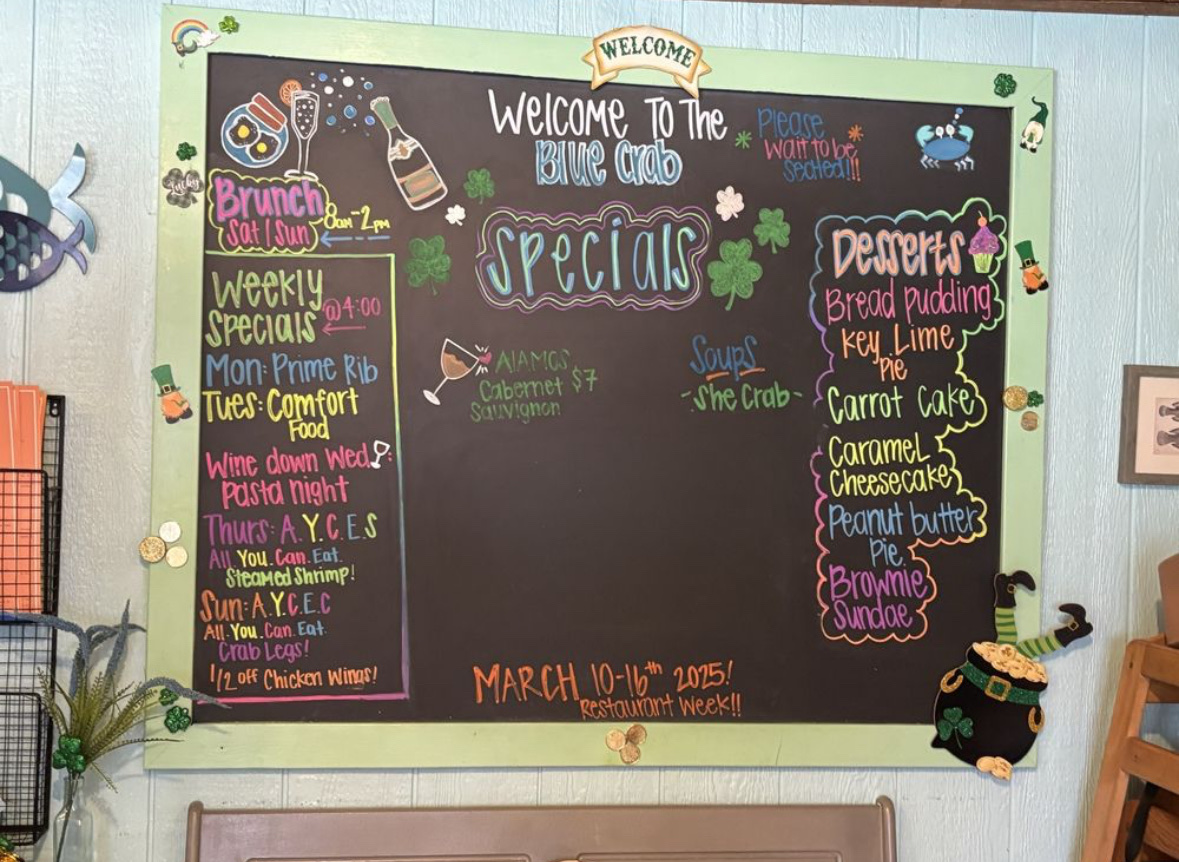 WELCOME
Welcome To The
Blue Crab
Please
wait to be
seated!!!
Brunch
Sat | Sun
8am-2pm
Specials
Weekly
Specials
@4:00
Mon: Prime Rib
Tues: Comfort
Food
Wine down Wed:
Pasta Night
Thurs: A.Y.C.E.S
All.You.Can.Eat.
Steamed Shrimp!
Sun: A.Y.C.E.C
All.You.Can.Eat.
Crab Legs!
1/2 off Chicken Wings!
ALAMOS
Cabernet $7
Sauvignon
Soups
-She Crab-
Desserts
Bread pudding
Key Lime
Pie
Carrot Cake
Caramel
Cheesecake
Peanut butter
Pie
Brownie
Sundae
MARCH 10-16th 2025!
Restaurant Week!!